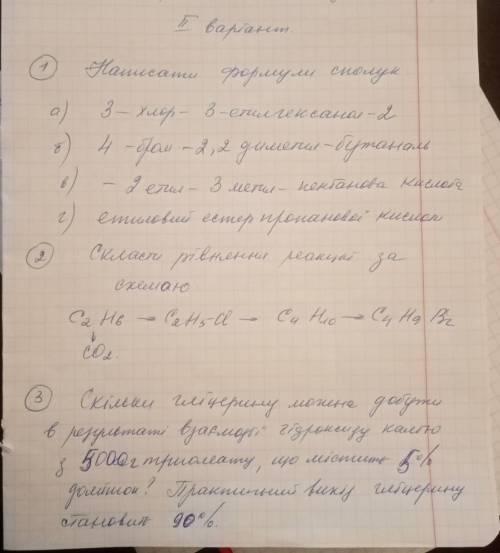 II варіант
① Написати формули сполук
а) 3 – хлор – 3 – етилгексанол – 2
б) 4 – бром – 2,2 диметил – бутаналь
в) – 2 етил – 3 метил – пентанова кислота
г) етиловий естер пропанової кислоти
② Скласти рівняння реакцій за
схемою
C2H6 → C2H5Cl → C4H10 → C4H9Br
↓
CO2.
③ Скільки гліцерину можна добути
в результаті взаємодії гідроксиду калію
з 5000г триолеату, що містить 5%
домішок? Практичний вихід гліцерину
становить 90%.